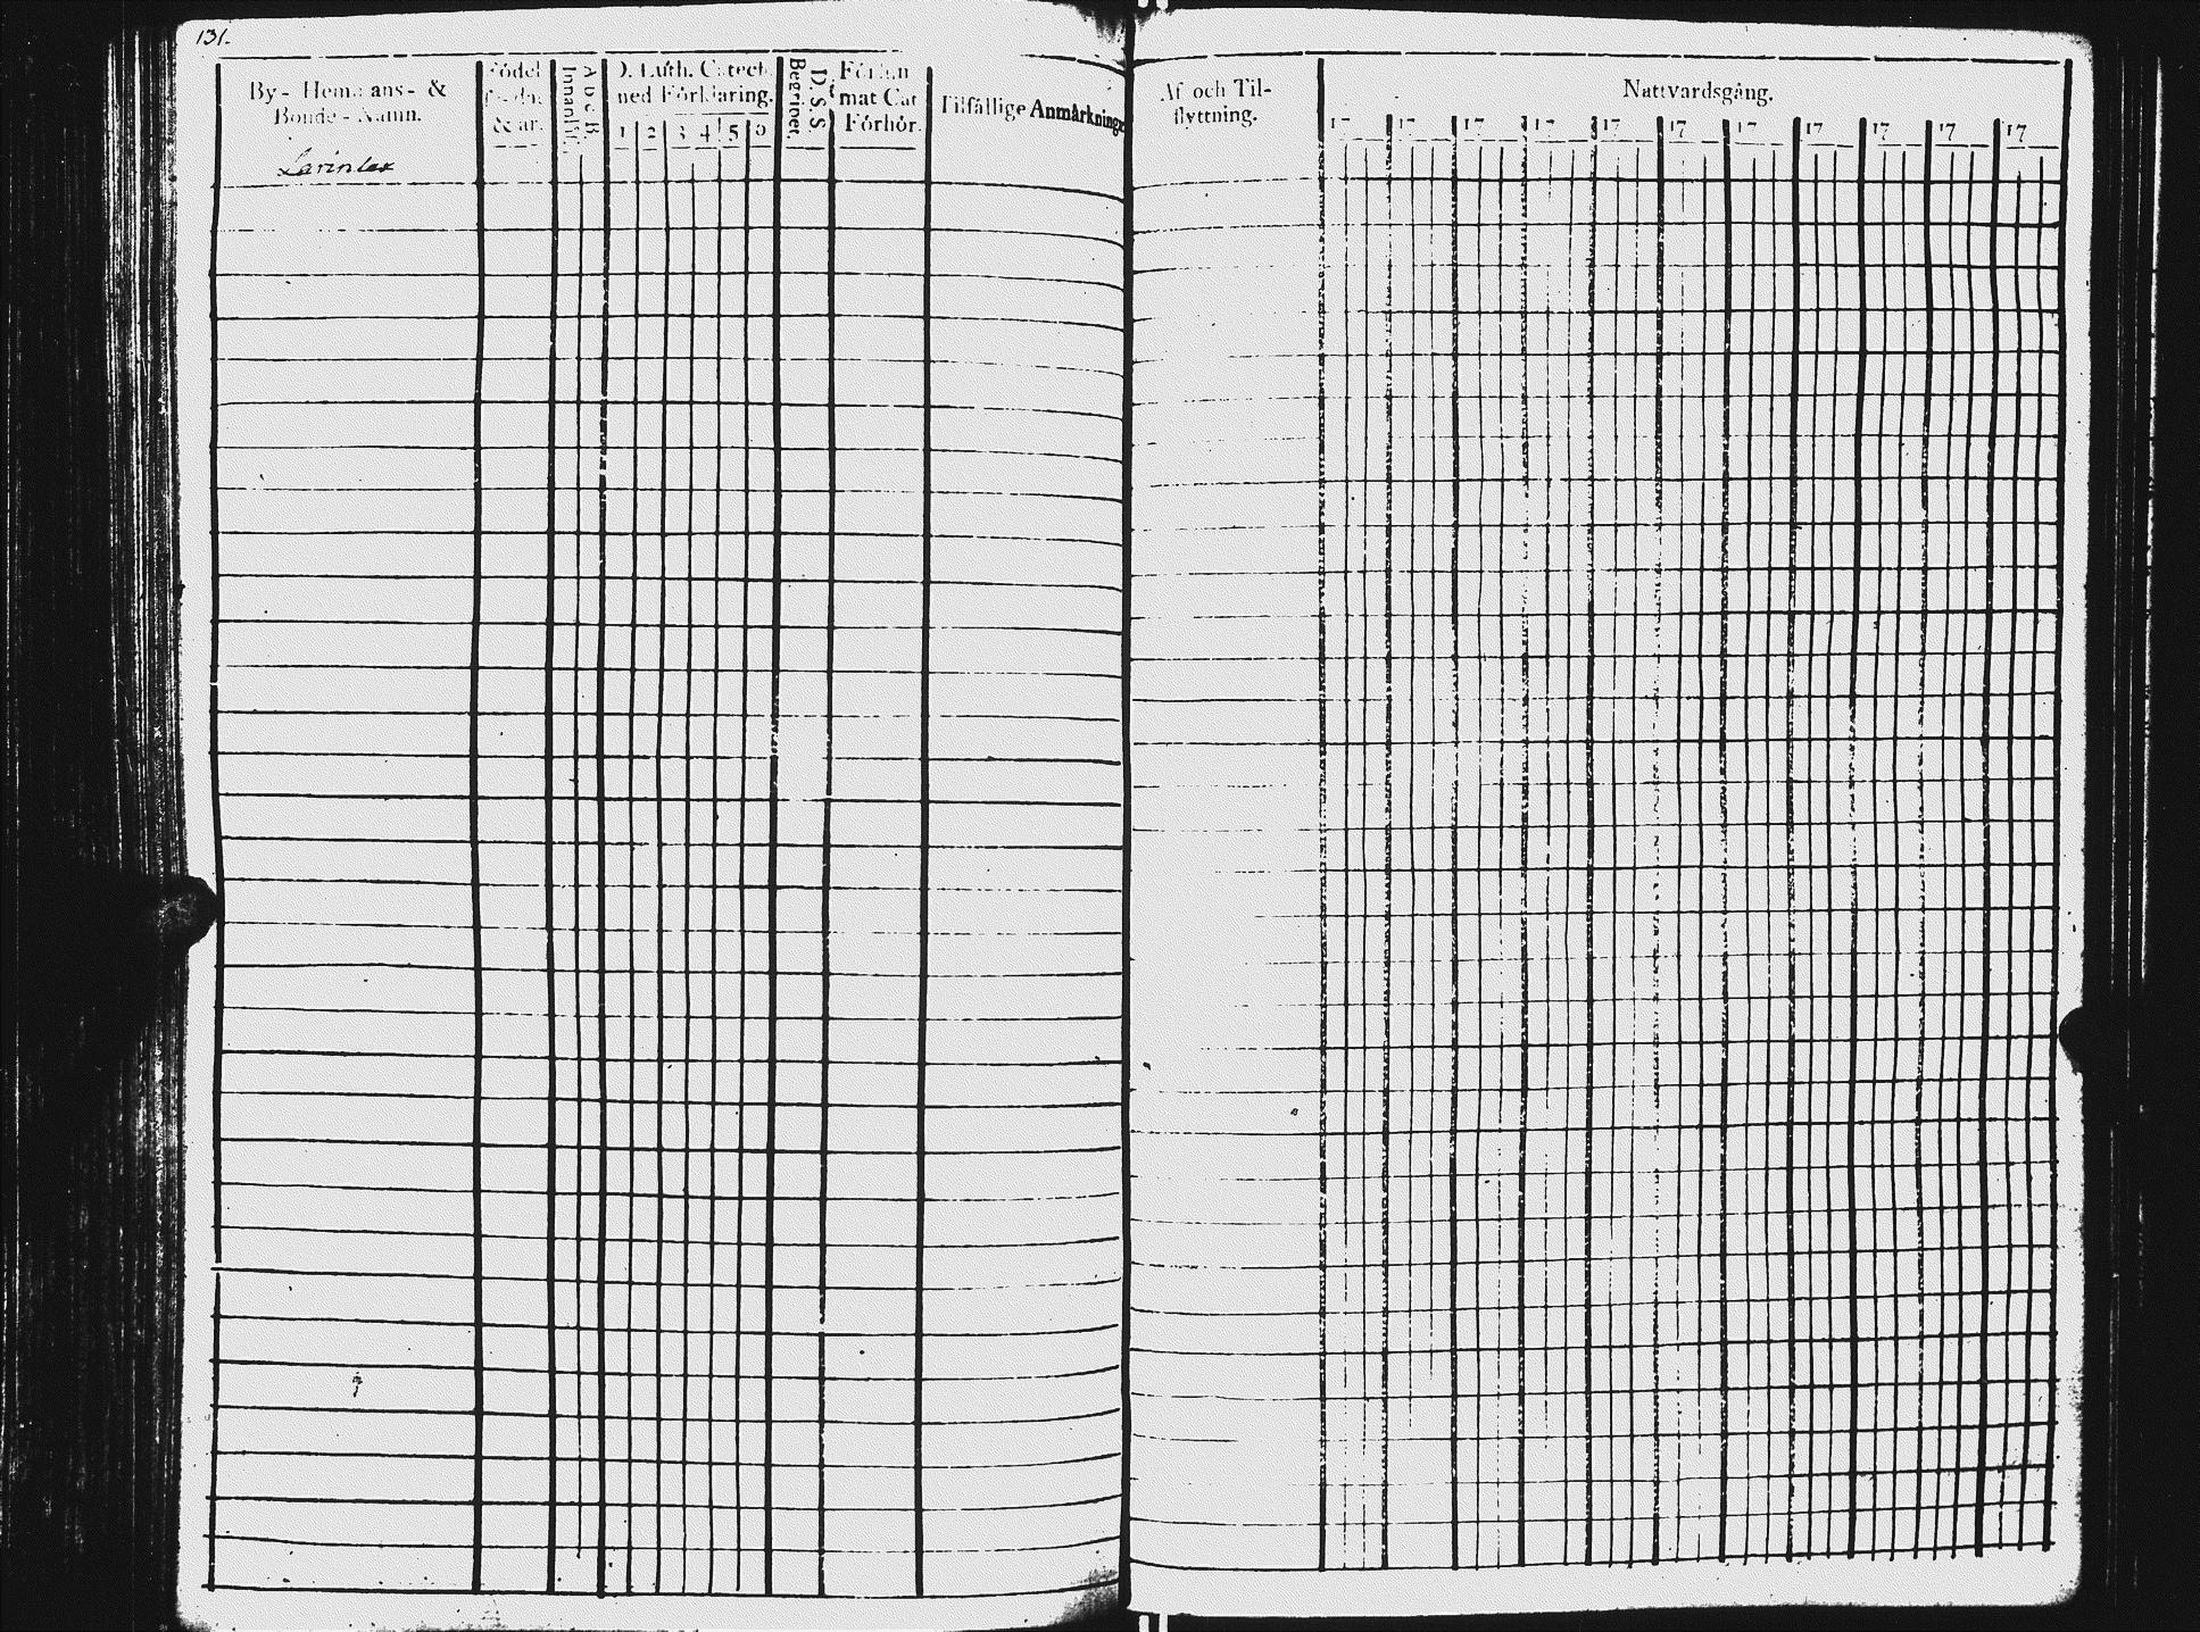 131.
By- Hemmans- &
Bonde-Namn.
Födel
&ar.
Innanläs.
A b c B.
D. Luth. Catech.
med Förklaring.
1 2 3 4 5 6
Begripet.
D. S. S.
mat Cat
Förhör.
Tilfällige Anmärkninge
Larinlax
Af och Til-
flyttning.
Nattvardsgång.
17 17 17 17 17 17 17 17 17 17 17